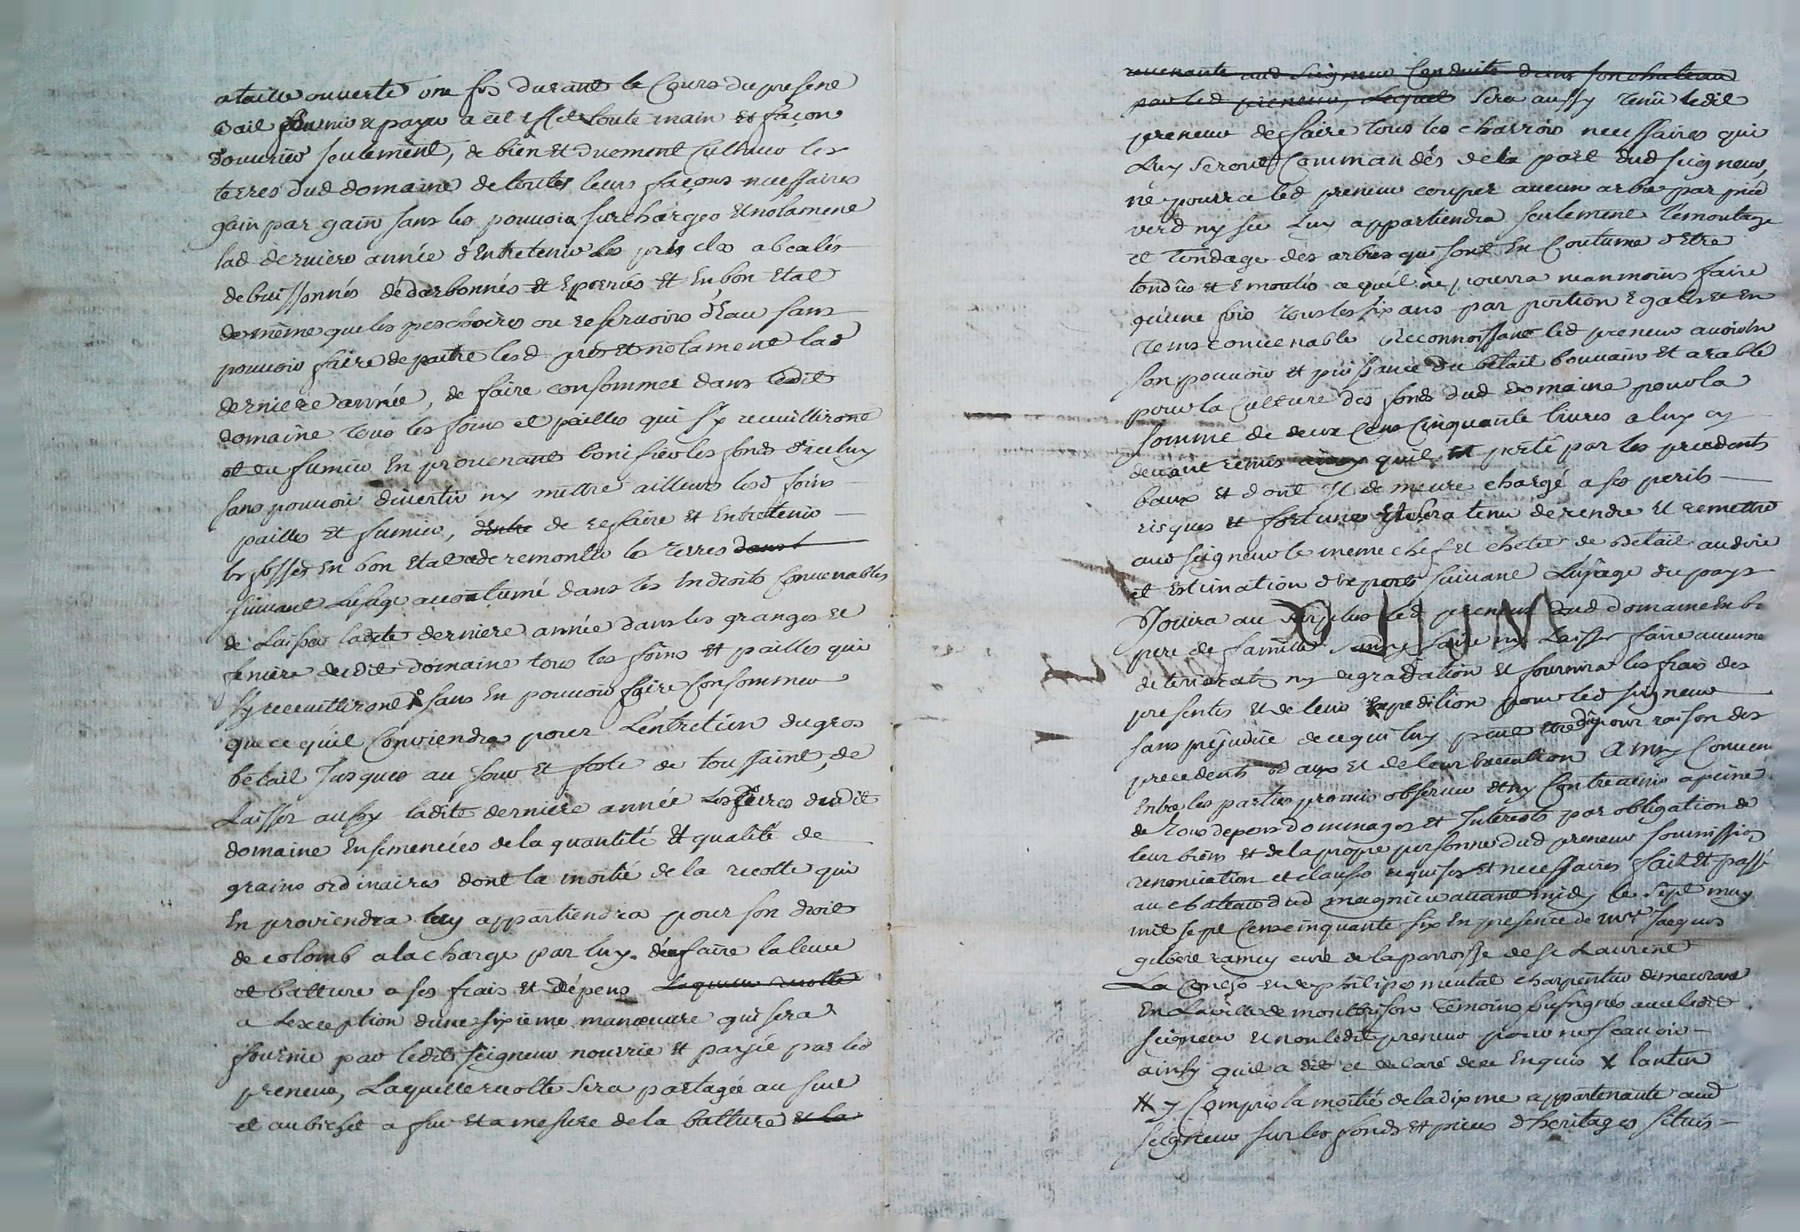 a taille ouverte une fois durant le Cours du present
Bail fournir et payer a cet effet toute main et façon
d'ouvrier seulement, de bien et duement cultiver les
terres dud domaine de toutes leurs façons necessaires
gain par gain sans les pouvoir surcharger et nolament
lad derniere année d'Entretenir les prés clos
debuissonnés dedarbonnés et Epierrés et En bon Etat
de même que les peschoires ou reservoirs d'Eau sans
pouvoir faire depaitre lesd prés et nolament lad
derniere année, de faire consommer dans ledit
domaine tous les foins et pailles qui s'y recuilliront
et du fumier En provenant bonifier les fonds d'iceluy
sans pouvoir divertir ny mettre ailleurs lesd foins
pailles et fumier, de refaire et Entretenir
les fossés En bon Etat et de remonter les terres dans l
suivant Lusage accoutumé dans les Endroits Convenables
de Laisser ladite derniere année dans les granges et
feniere dudit domaine tous les foins et pailles qui
s'y recuilliront sans En pouvoir faire Consommer
que ce qu'il Conviendra pour L'entretien du gros
bétail Jusques au Jour et feste de toussaint, de
Laisser aussy ladite derniere année Les terres dudit
domaine Ensemencées de la quantité et qualité de
grains ordinaires dont la moitié de la recolte qui
En proviendra luy appartiendra pour son droit
de colomb a la charge par luy d'en faire la leuee
et batture a ses frais et dépens Laquelle recolte
a L'exception d'une sixieme manœuvre qui sera
fournie par ledit seigneur nourrie et payée par led
preneur, Laquelle recolte sera partagée au suel
et au bichet a fur et a mesure de la batture et la
revenante aud Seigneur Conduite dans son chateau
par led preneur, Lequel sera aussy tenu ledit
preneur de faire tous les charrois necessaires qui
Luy seront Commandés de la part dud seigneur,
ne pourra led preneur couper aucun arbre par pied
verd ny sec Luy appartiendra seulement l'emontage
et tondage des arbres qui sont En Coutume d'Etre
tondus et Emoutés ce qu'il ne pourra neanmoins faire
qu'une fois tous les six ans par portion Egales et En
tems convenable reconnoissant led preneur avoir En
son pouvoir et puissance du bétail bouvain et arable
pour la Culture des fonds dud domaine pour la
somme de deux Cens Cinquante livres a luy cy
devant remis ainsy qu'il est porté par les precedents
baux et dont Il demeure chargé a ses perils
risques et fortunes et sera tenu de rendre et remettre
aud seigneur le meme chef et chetel de betail au dire
et Estimation d'Experts suivant L'usage du pays
Jouira au surplus led preneur dud domaine En bo
pere de famille sans y faire ny Laisser faire aucune
deteriorat ny degradation et fournira les frais des
presentes et de leur Expedition pour led seigneur
sans prejudice de ce qui luy peut Etre dû pour raison des
precedents baux et de leur Execution Ainsy Convenu
Entre les parties promis observer et n'y Contrevenir a peine
de tous depens dommages et Interests par obligation de
leur biens et de la propre personne dud preneur soumissions
renonciation et clauses requises et necessaires fait et passé
au chateau dud magnieu avant midy le sept may
mil sept Cens cinquante six En presence de Mre Jacques
gilbert ramey curé de la parroisse de st Laurent
La Conche et de philipe mental charpentier demeurant
En La ville de montbrison temoins soussignés avec ledit
seigneur et non ledit preneur pour ne scavoir
ainsy qu'il a dit et declaré de ce Enquis X lantur
X y Compris la moitié de la dixme appartenante aud
seigneur sur les fonds et pieces d'heritages situés